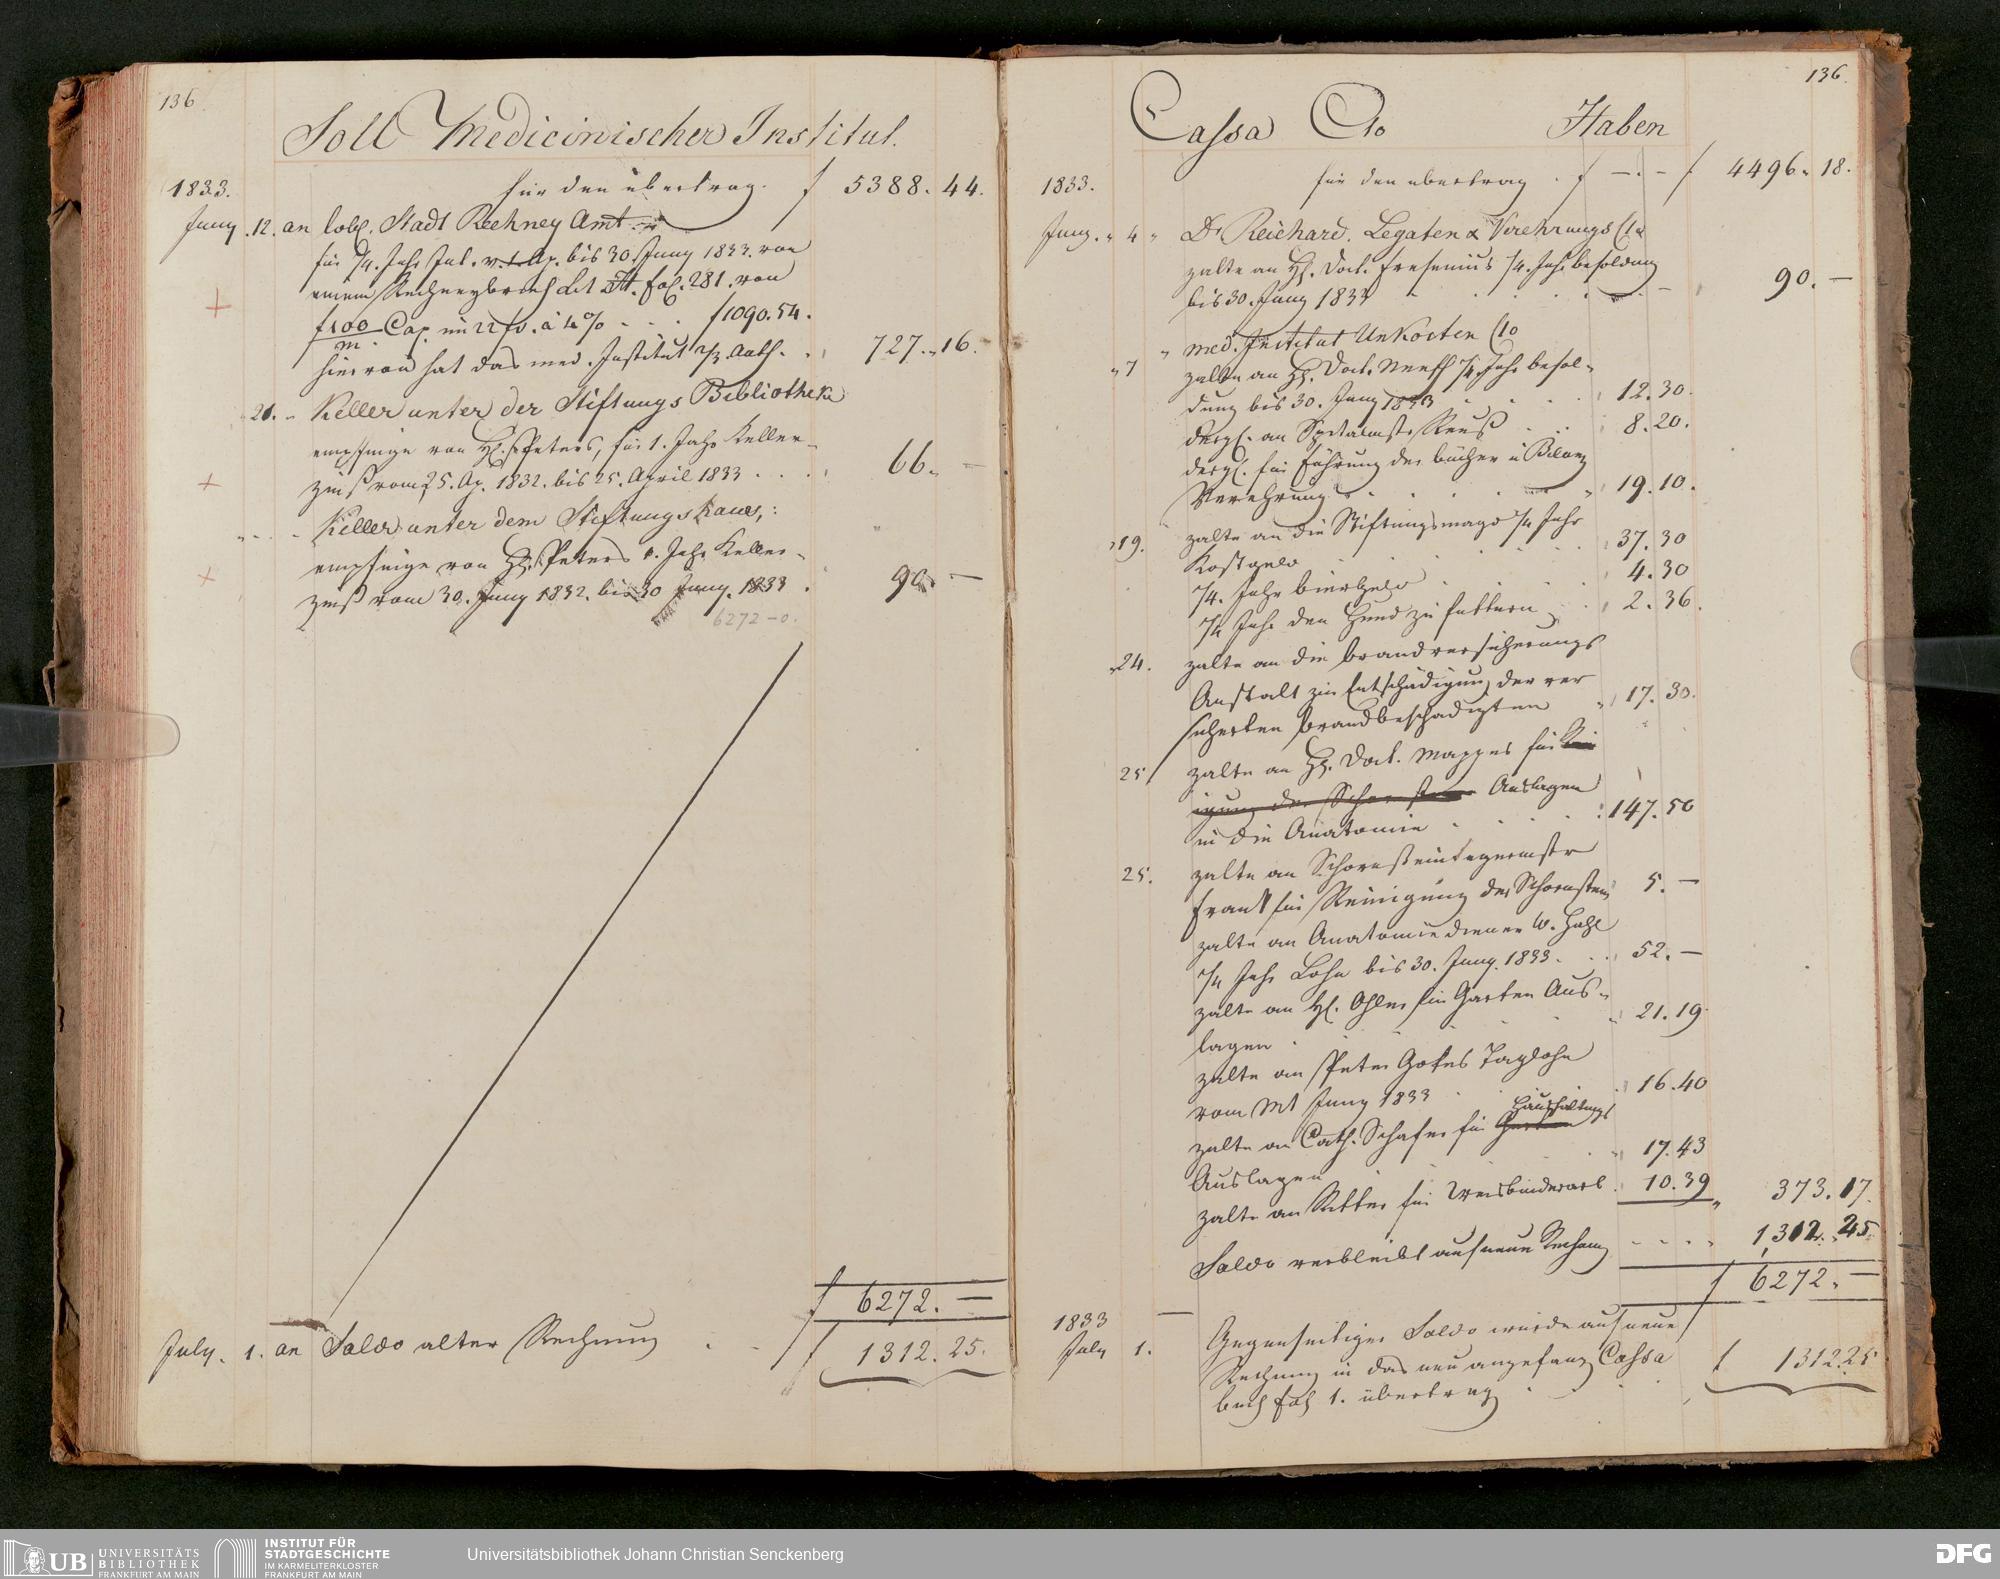 136.
Soll Medicinischer Institut.
1833. für den übertrag. f 5388. 44.
Juny .12. an löbl. Stadt Rechney Amt
für 1/4. Jahr Int. v. 1. Ap. bis 30. Juny 1833. von
einem Rechneybrief Lit fol. 281. von
f 100/m Cap. im 22 fl. à 4% - . . f 1090. 54.
hievon hat das med. Institut 2/3 Anth. . 727. „ 16.
21. „ Keller unter der Stiftungs Bibliotheke
empfinge von H. Peters, für 1. Jahr Keller-
zinß vom 25. Ap. 1832. bis 25. April 1833 . . . . 66. -
Keller unter dem Stiftungshaus,:
empfinge von H. Peters 1. Jahr Keller-
zinß vom 30. Juny 1832. bis 30 Juny. 1833 . 90. -
6272 - 0.
f 6272. —
July. 1. an Saldo alter Rechnung . - f 1312. 25.
136.
Cassa Cto Haben
1833. für den übertrag . f - . - f 4496. 18.
Juny. „ 4 „ Dr Reichard. Legaten & Verehrungs Cto
zalte an H. Doct. Fresenius 1/4. Jahr besoldung
bis 30. Juny 1833 . . . . 90. —
„ med. Institut Unkosten Cto
„ 7 zalte an H. Doct. Neeff 1/4. Jahr besol-
dung bis 30. Juny 1833 . . . 12. 30.
dergl. an Spitalmstr Reuß . . 8. 20.
dergl. für Führung der bücher u Bilanz
Verehrung . . . . 19. 10.
„19. zalte an die Stiftungsmagd 1/4 Jahr
Kostgeld . . . . 37. 30
1/4. Jahr bierGeld . . . 4. 30
1/4 Jahr den Hund zu futtern . 2. 36.
„24. zalte an die brandversicherungs
Anstalt zur Entschädigung der ver
sicherten brandbeschädigten „ 17. 30.
25 zalte an H. Doct. Mappes für
Auslagen
in die Anatomie . . . . : 147. 50
25. zalte an Schornsteinfegermstr
Frank für Reinigung der Schornstein 5. —
zalte an Anatomiediener W. Hahl
1/4 Jahr Lohn bis 30. Juny. 1833. . . 52. —
zalte an H. Ohler für Garten Aus-
lagen . . . . 21. 19.
zalte an Peter Gokes Taglohn
vom Mt Juny 1833 . . 16. 40
Haushaltungs
zalte an Cath. Schäfer für Garten
Auslagen . . . 17. 43
zalte an Ritter für Weisbinderarb . 10. 39 „ 373. 17.
Saldo verbleibt auf neue Rechnung - - - - 1312. 25.
f 6272. —
1833
July 1. Gegenseitiger Saldo wurde auf neue
Rechnung in das neu angefang Cassa f 1312. 25
buch fol 1. übertrag .
UB UNIVERSITÄTS
BIBLIOTHEK
FRANKFURT AM MAIN
INSTITUT FÜR
STADTGESCHICHTE
IM KARMELITERKLOSTER
FRANKFURT AM MAIN
Universitätsbibliothek Johann Christian Senckenberg
DFG